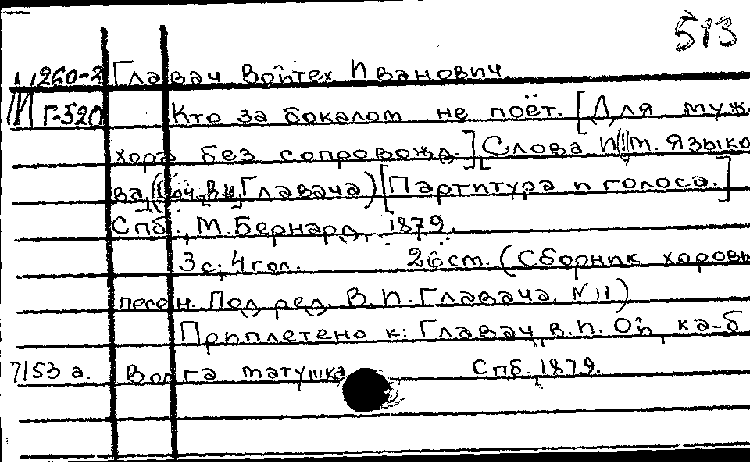 513
М 260-2 Главач Войтех Иванович
Г-520 Кто за бокалом не поёт. [Для муж.
хора без сопровожд.] Слова Н.М. Языко
ва. (Соч. В.И. Главача) [Партитура и голоса.]
Спб., М. Бернард, 1879.
3 с; 4 гол. 26 см. (Сборник хоровы
песен. Под ред. В.И. Главача. N 11)
Приплетено к: Главач, В.И. Ой, ка-б
7153 а. Волга матушка Спб. 1879.